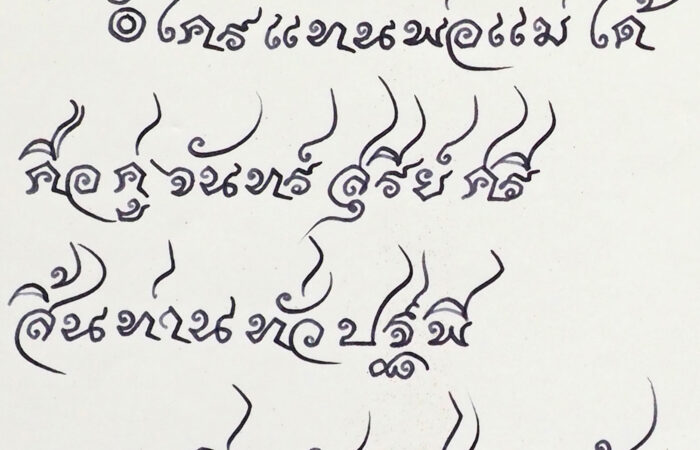 ๏ ใครแทนพ่อแม่ ได้
คือ คู่ จันทร์ สุรีย์ ศรี
สิ้น ท่าน ทั่ว ปฐพี